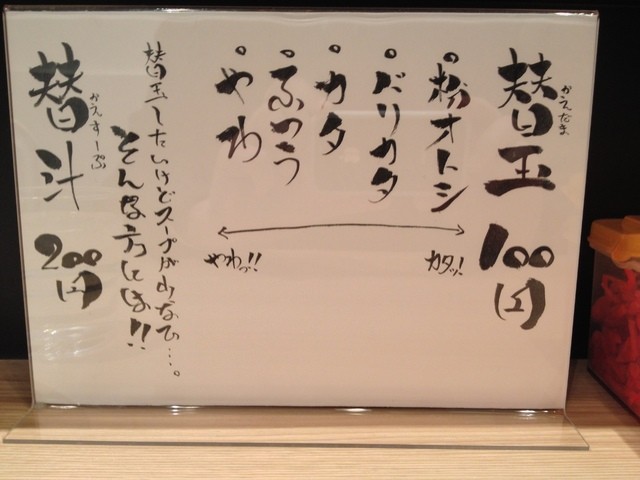 替玉 100円
かえだま
・粉オトシ
・バリカタ
・カタ
・ふつう
・やわ
カタッ!
やわっ!!
替玉したいけどスープが少なひ…。
そんな方には!!
替汁 200円
かえすーぷ